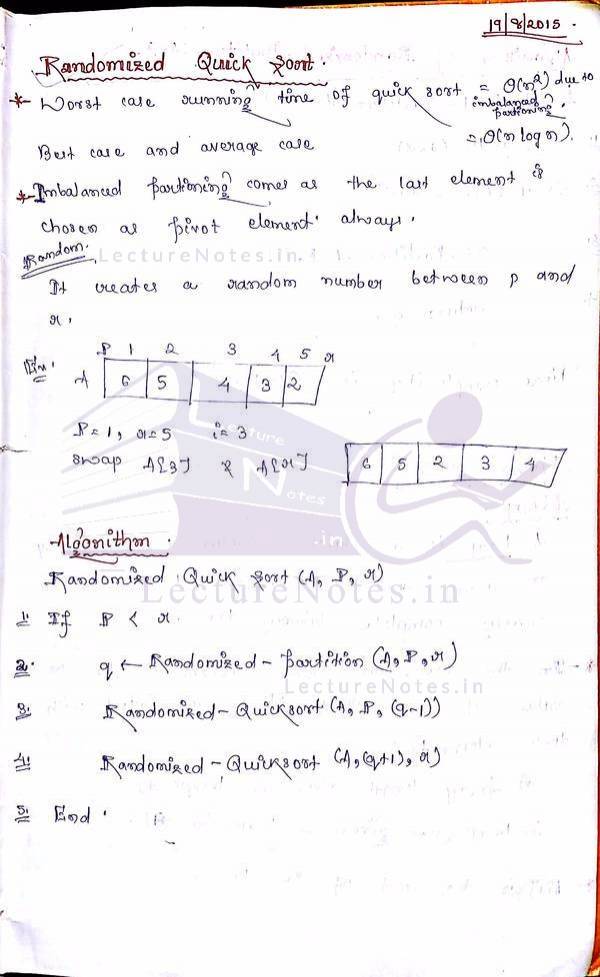 19/8/2015.
Randomized Quick Sort.
* Worst case running time of quick sort = Θ(n²) due to
imbalanced
partioning.
Best case and average case = Θ(n log n).
* Imbalanced partioning comes as the last element is
chosen as pivot element always.
Random.
LectureNotes.in
It creates a random number between p and
r.
Ex.
P 1 2 3 4 5 r
A 6 5 4 3 2
P=1, r=5 i=3
swap A[3] & A[r] 6 5 2 3 4
Lecture
Notes
.in
Algorithm.
Randomized Quick Sort (A, P, r)
LectureNotes.in
1. If P < r
2. q ← Randomized-partition (A, P, r)
LectureNotes.in
3. Randomized-Quicksort (A, P, (q-1))
4. Randomized-Quicksort (A, (q+1), r)
5. End.